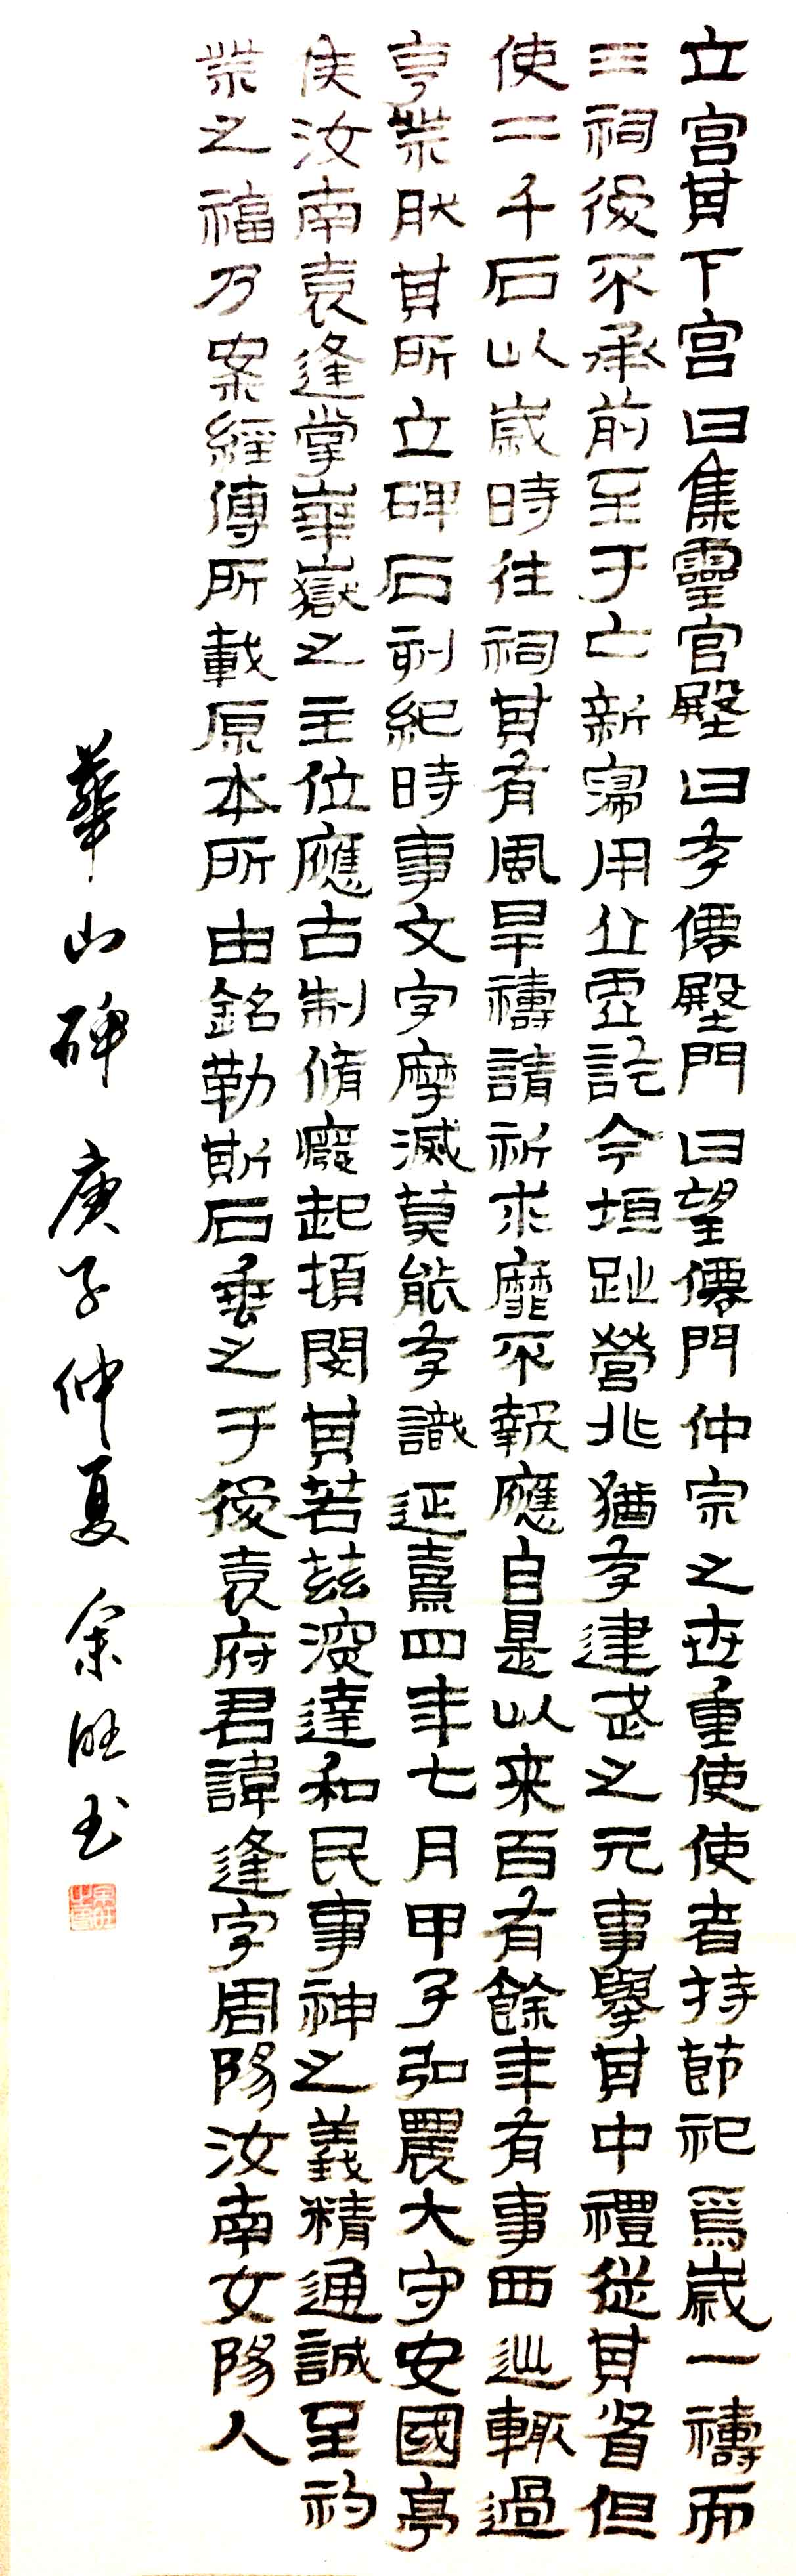 立宫其下宫曰集靈宫殿曰存僊殿門曰望僊門仲宗之世重使使者持節祀焉歲一禱而
三祠後不承前至于亡新寖用丘虛訖今垣趾營兆猶存建武之元事舉其中禮從其省但
使二千石以歲時往祠其有風旱禱請祈求靡不報應自是以来百有餘年有事西巡輒過
亨祭然其所立碑石刻紀時事文字摩滅莫能存識延熹四年七月甲子弘農大守安國亭
侯汝南袁逢掌華嶽之主位應古制脩癈起頓閔其若茲深達和民事神之義精通誠至礿
祭之福乃案經傳所載原本所由銘勒斯石垂之于後袁府君諱逢字周陽汝南女陽人
華山碑 庚子仲夏 余旺书